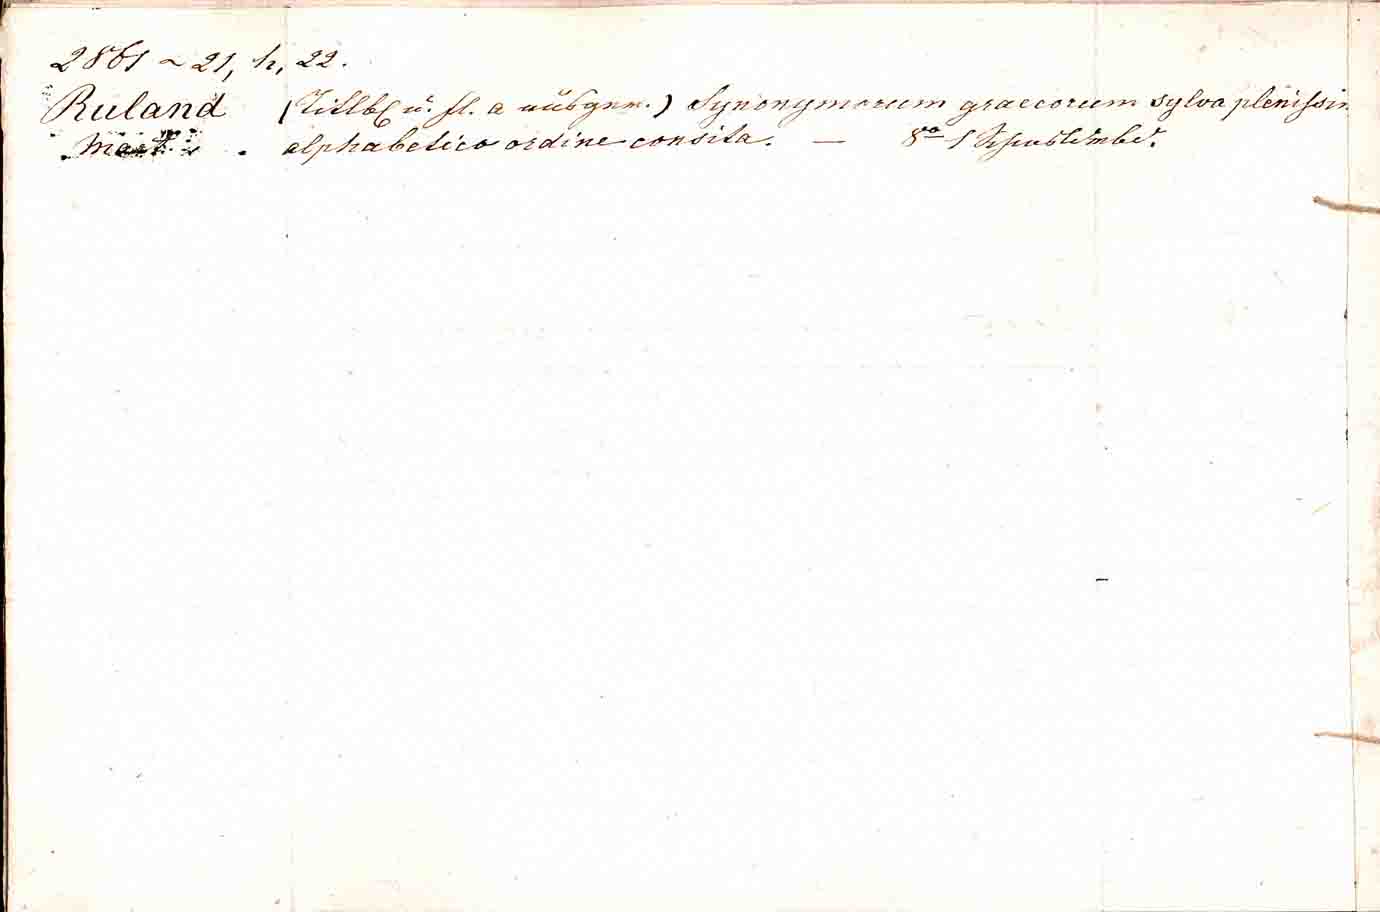 2861 ~ 21, h, 22.
Ruland (Titlbl u. fl. a ausgerr.) Synonymorum graecorum sylva plenissim
Mart. alphabetico ordine consita. — 8vo